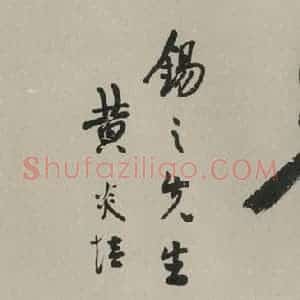 錫之先生
黃炎培
Shufaziliao.COM